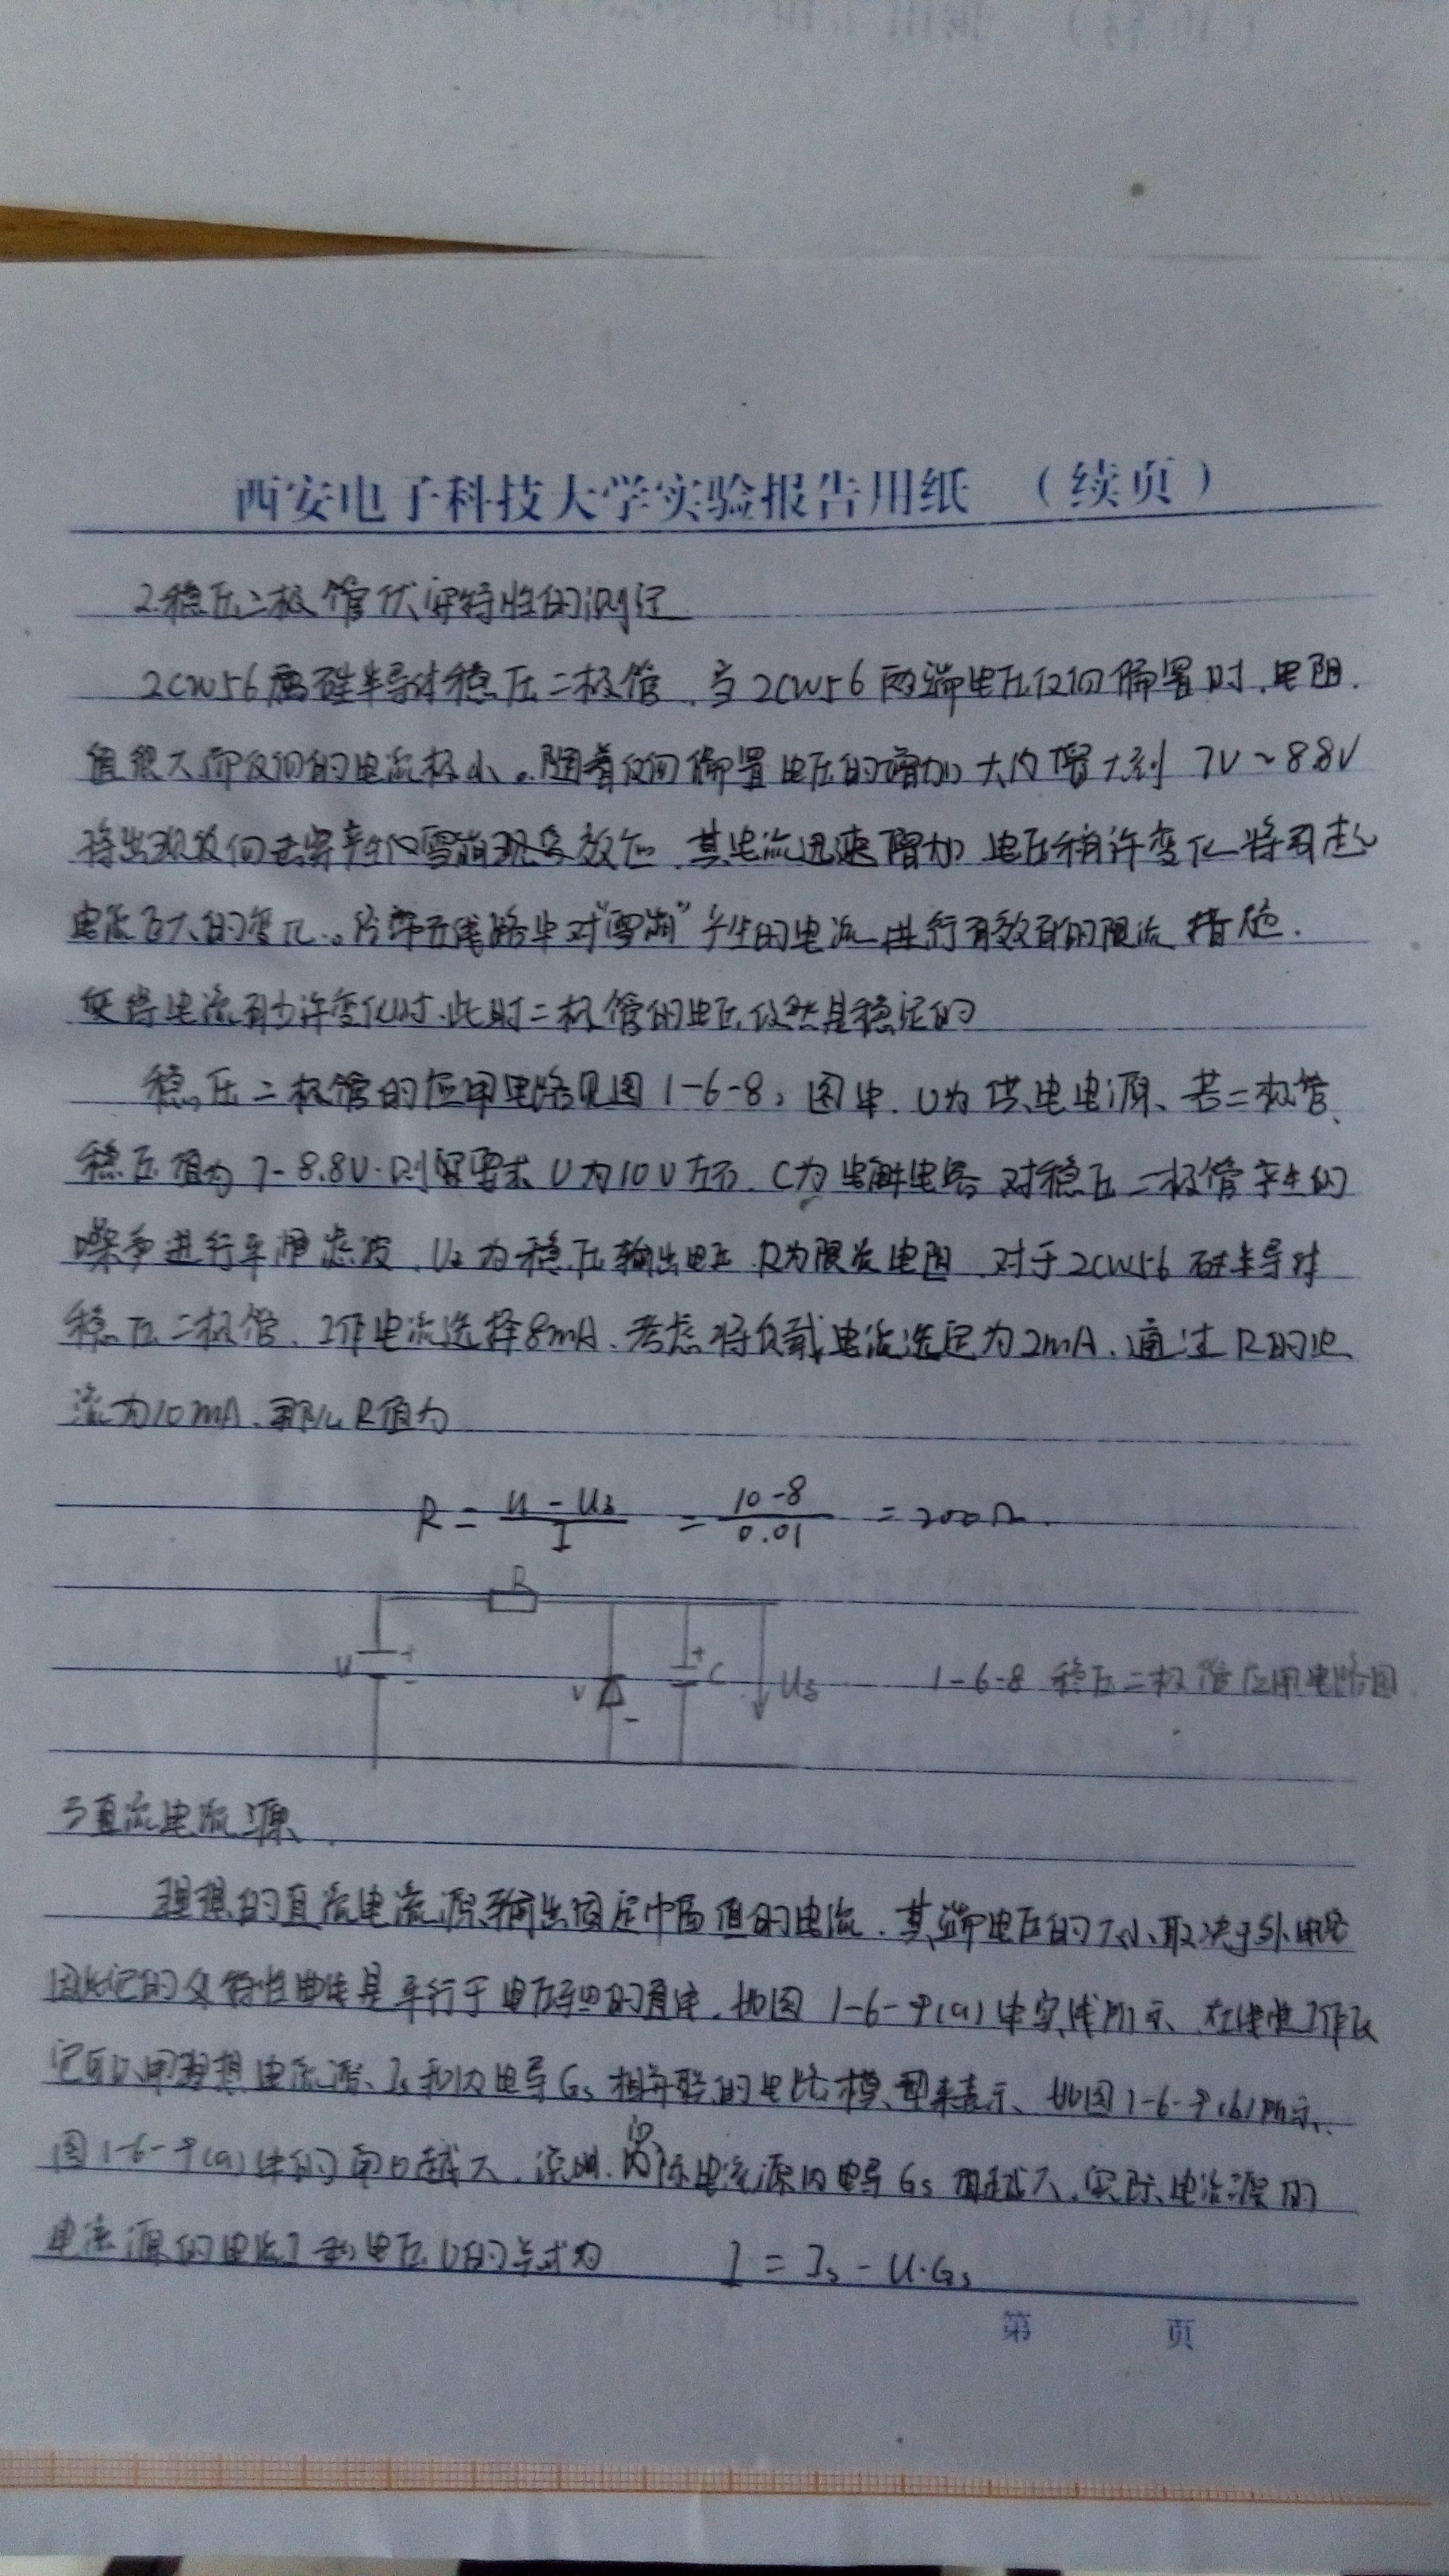 西安电子科技大学实验报告用纸 （续页）
2.稳压二极管伏安特性的测定
2CW56属硅半导体稳压二极管，当2CW56两端电压反向偏置时，电阻
值很大而反向的电流极小。随着反向偏置电压的增加大约增大到 7V~8.8V
将出现反向击穿产生的雪崩现象效应，其电流迅速增加，电压稍许变化将引起
电流巨大的变化。只要在线路中对"雪崩"产生的电流进行有效的限流措施.
其电流有少许变化时，此时二极管的电压仍然是稳定的
稳压二极管的应用电路见图1-6-8，图中，U为供电电源、若二极管
稳压值为7-8.8V.则要求U为10V左右，C为电解电容，对稳压二极管产生的
噪声进行平滑滤波，U3为稳压输出电压，R为限流电阻，对于2CW56硅半导体
稳压二极管，工作电流选择8mA，考虑将负载电流选定为2mA，通过R的电
流为10mA，那么R值为
R = (U - U3)/I = (10-8)/0.01 = 200Ω.
R
U + - V - + C U3 1-6-8 稳压二极管应用电路图
3直流电流源
理想的直流电流源输出固定幅值的电流，其端电压的大小取决于外电路
因此它的外特性曲线是平行于电压轴的直线，如图1-6-9(a)中实线所示、在线性工作区
它可以用理想电流源Is和内电导Gs相并联的电路模型来表示、如图1-6-9(b)所示
图1-6-9(a)中的角θ越大，说明实际电流源内电导Gs值越大，实际电流源的
电流源的电流I和电压U的关系式为 I = Is - U·Gs
第 页